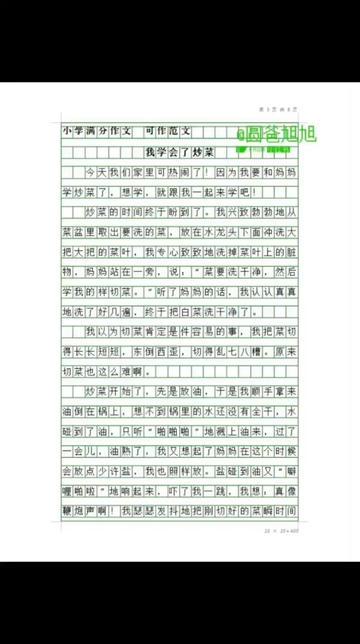 第 1 页 共 2 页
小学满分作文 可作范文
@圆爸旭旭
我学会了炒菜
今天我们家里可热闹了！因为我要和妈妈
学炒菜了，想学，就跟我一起来学吧！
炒菜的时间终于盼到了。我兴致勃勃地从
菜盆里取出要洗的菜，放在水龙头下面冲洗大
把大把的菜叶，我专心致致地洗掉菜叶上的脏
物，妈妈站在一旁，说：“菜要洗干净，然后
学我的样切菜。”听了妈妈的话，我认认真真
地洗了好几遍，终于把白菜洗干净了。
我以为切菜肯定是件容易的事，我把菜切
得长长短短，东倒西歪，切得乱七八糟。原来
切菜也这么难啊。
炒菜开始了，先是放油，于是我顺手拿来
油倒在锅上，想不到锅里的水还没有全干，水
碰到了油，只听“啪啪啪”地溅上油来，过了
一会儿，油熟了，我又想起了妈妈在这个时候
会放点少许盐，我也照样放。盐碰到油又“噼
喱啪啦”地响起来，吓了我一跳，我想：真像
鞭炮声啊！我瑟瑟发抖地把刚切好的菜瞬时间
20 × 20 = 400